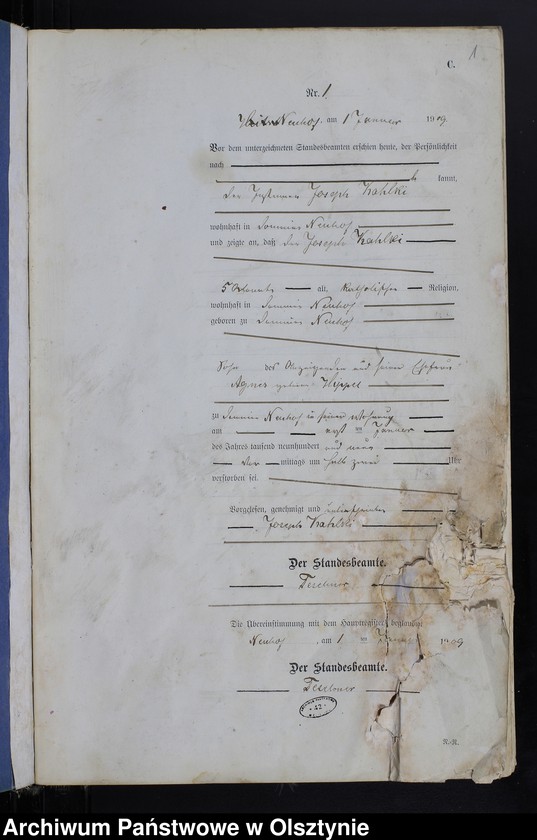 1
C.
Nr. 1.
Neuhof, am 1 Januar 1909.
Vor dem unterzeichneten Standesbeamten erschien heute, der Persönlichkeit
nach
kannt,
der Joseph Kahlki
wohnhaft in Neuhof
und zeigte an, daß der Joseph Kahlki
5 Monate alt, katholischer Religion,
wohnhaft in Neuhof
geboren zu Neuhof
Sohn des Anzeigenden und seiner Ehefrau
Agnes geborne Hippel
zu Neuhof in seiner Wohnung
am ersten Januar
des Jahres tausend neunhundert und neun
Vor mittags um halb Uhr
verstorben sei.
Vorgelesen, genehmigt und unterschrieben
Joseph Kahlki
Der Standesbeamte.
Teschner
Die Übereinstimmung mit dem Hauptregister beglaubigt
Neuhof, am 1 ten Januar 1909
Der Standesbeamte.
Teschner
42
Archiwum Państwowe w Olsztynie